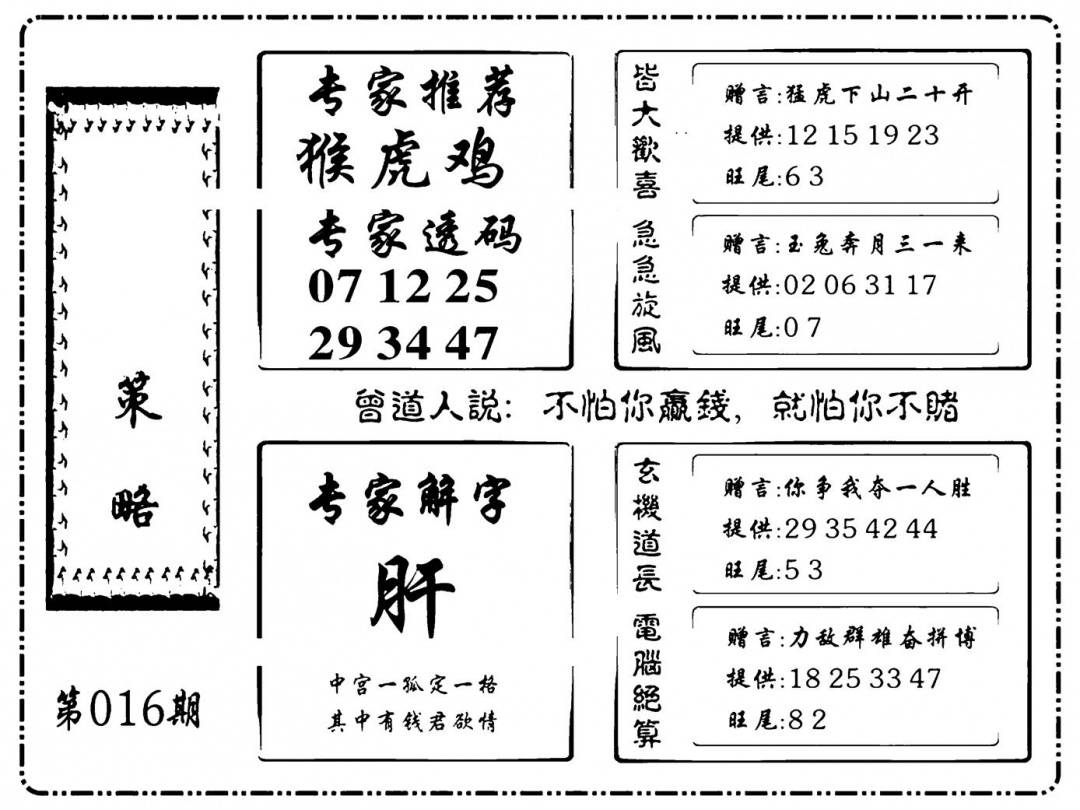 策略
第016期
专家推荐
猴虎鸡
专家透码
07 12 25
29 34 47
皆大歡喜
赠言:猛虎下山二十开
提供:12 15 19 23
旺尾:6 3
急急旋风
赠言:玉兔奔月三一来
提供:02 06 31 17
旺尾:0 7
曾道人説: 不怕你赢錢, 就怕你不賭
专家解字
肝
中宫一孤定一格
其中有钱君欲情
玄機道長
赠言:你争我夺一人胜
提供:29 35 42 44
旺尾:5 3
電腦絕算
赠言:力敌群雄奋拼博
提供:18 25 33 47
旺尾:8 2